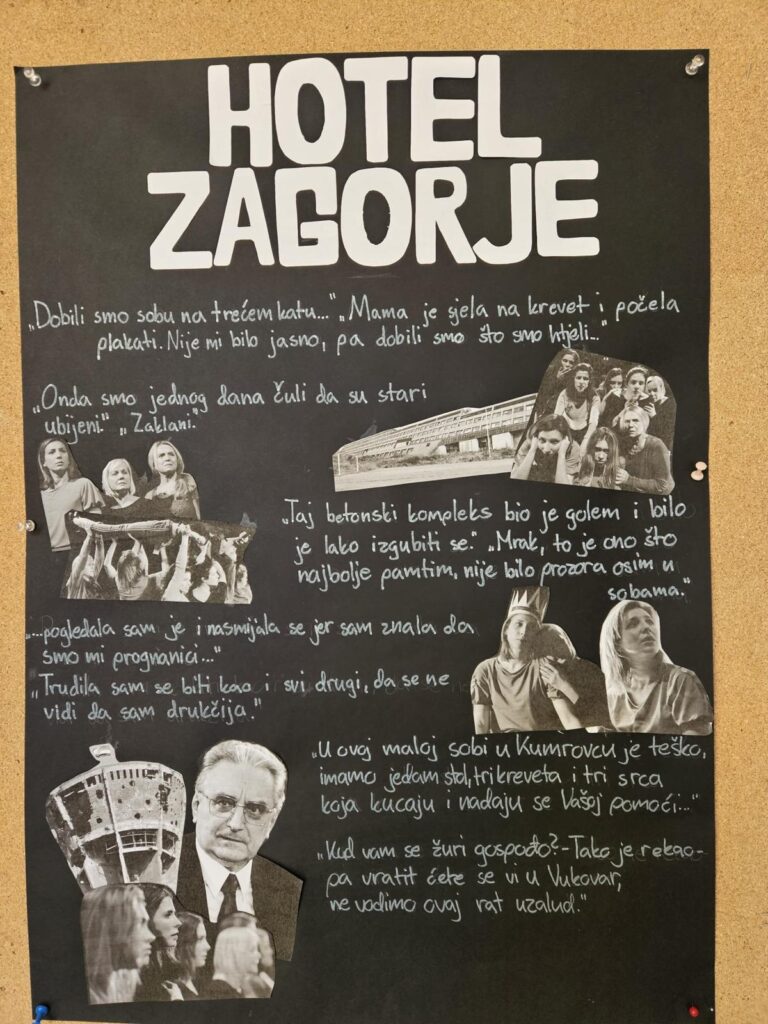 HOTEL
ZAGORJE
„Dobili smo sobu na trećem katu..." „Mama je sjela na krevet i počela
plakati. Nije mi bilo jasno, pa dobili smo što smo htjeli..."
„Onda smo jednog dana čuli da su stari
ubijeni." „Zaklani."
„Taj betonski kompleks bio je golem i bilo
je lako izgubiti se." „Mrak, to je ono što
najbolje pamtim, nije bilo prozora osim u
sobama."
„...pogledala sam je i nasmijala se jer sam znala da
smo mi prognanici..."
„Trudila sam se biti kao i svi drugi, da se ne
vidi da sam drukčija."
„U ovoj maloj sobi u Kumrovcu je teško,
imamo jedam stol, tri kreveta i tri srca
koja kucaju i nadaju se Vašoj pomoći..."
„Kud vam se žuri gospođo?-Tako je rekao-
pa vratit ćete se vi u Vukovar,
ne vodimo ovaj rat uzalud."